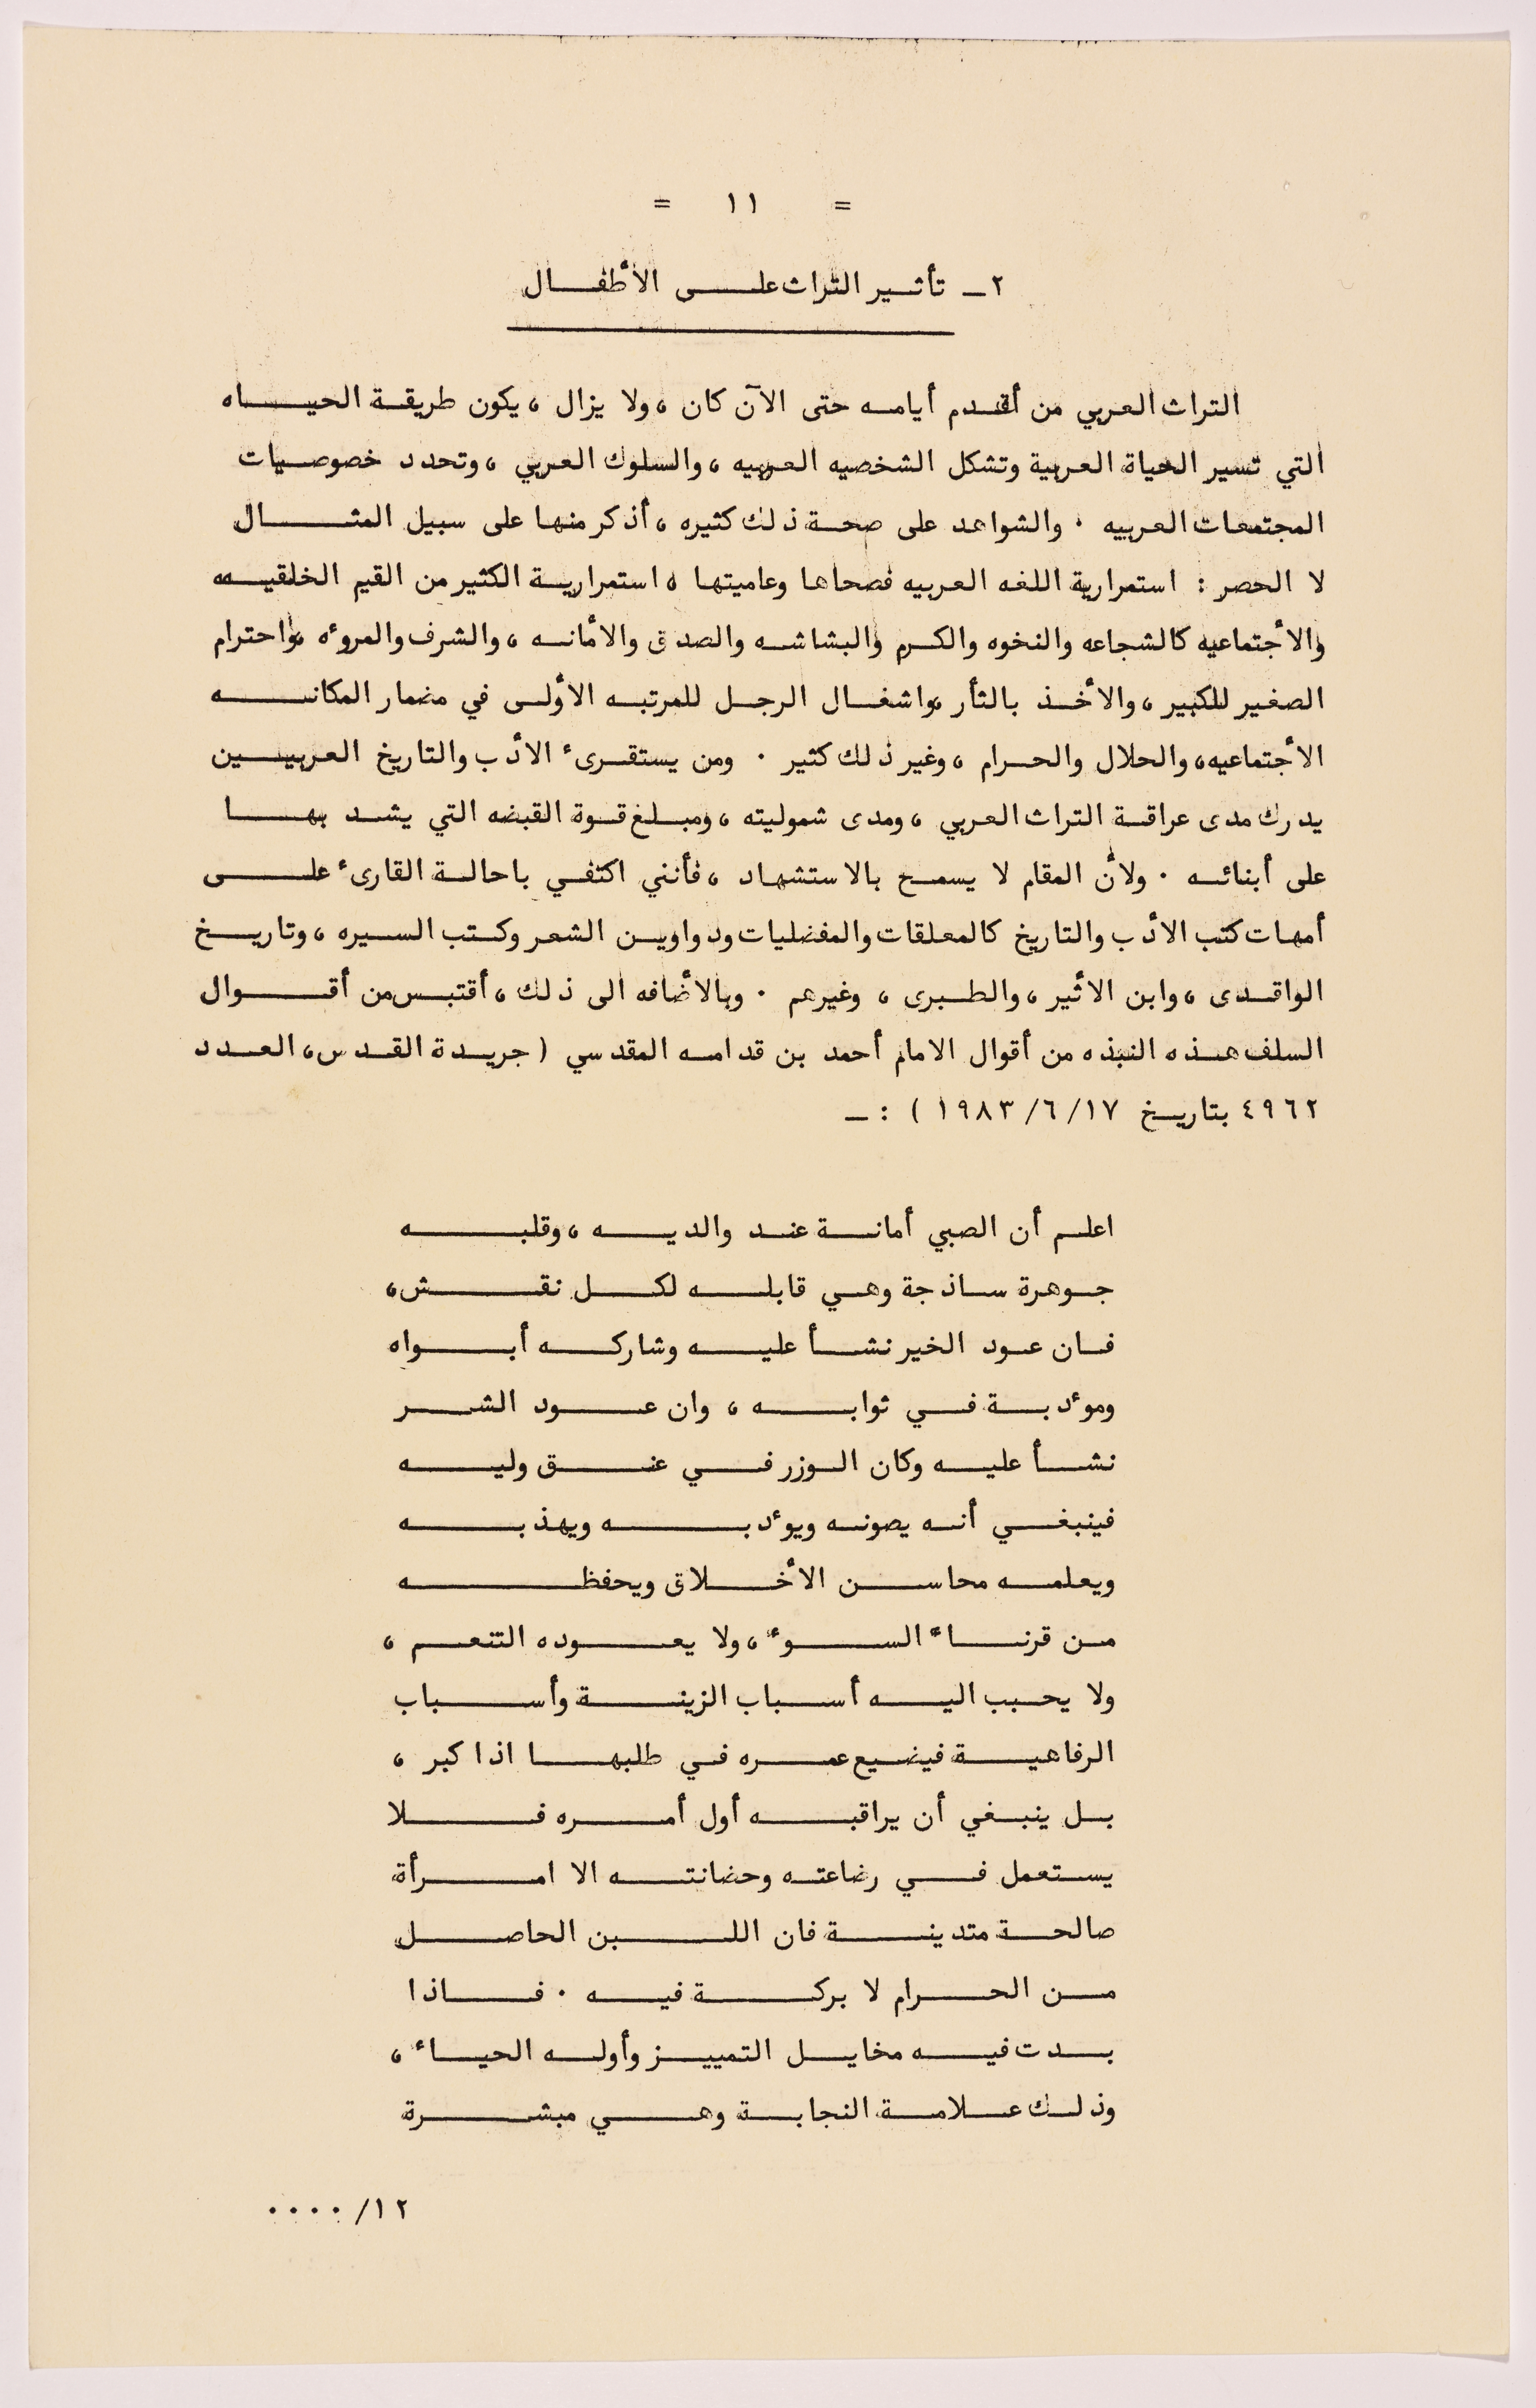 = ١١ =
٢ــ تأثير التراث على الأطفال
التراث العربي من أقدم أيامه حتى الآن كان ، ولا يزال ، يكون طريقة الحياه
التي تسير الحياة العربية وتشكل الشخصيه العربيه ، والسلوك العربي ، وتحدد خصوصيات
المجتمعات العربيه ٠ والشواهد على صحة ذلك كثيره ، أذكر منها على سبيل المثال
لا الحصر : استمرارية اللغه العربيه فصحاها وعاميتها ، استمرارية الكثير من القيم الخلقيه
والأجتماعيه كالشجاعه والنخوه والكرم والبشاشه والصدق والأمانه ، والشرف والمروءه ،واحترام
الصغير للكبير ، والأخذ بالثأر ،واشغال الرجل للمرتبه الأولى في مضمار المكانه
الأجتماعيه، والحلال والحرام ، وغير ذلك كثير ٠ ومن يستقرىء الأدب والتاريخ العربيين
يدرك مدى عراقة التراث العربي ، ومدى شموليته ، ومبلغ قوة القبضه التي يشد بها
على أبنائه ٠ ولأن المقام لا يسمح بالاستشهاد ، فأنني اكتفي باحالة القارىء على
أمهات كتب الأدب والتاريخ كالمعلقات والمفضليات ودواوين الشعر وكتب السيره ، وتاريخ
الواقدى ، وابن الأثير ، والطبرى ، وغيرهم ٠ وبالأضافه الى ذلك ، أقتبس من أقوال
السلف هذه النبذه من أقوال الامام أحمد بن قدامه المقدسي ( جريدة القدس، العدد
٤٩٦٢ بتاريخ ١٩٨٣/٦/١٧ ) : ــ
اعلم أن الصبي أمانة عند والديه ، وقلبه
جوهرة ساذجة وهي قابله لكل نقش،
فان عود الخير نشأ عليه وشاركه أبواه
ومؤدبة في ثوابه ، وان عود الشر
نشأ عليه وكان الوزر في عنق وليه
فينبغي أنه يصونه ويؤدبه ويهذبه
ويعلمه محاسن الأخلاق ويحفظه
من قرناء السوء ، ولا يعوده التنعم ،
ولا يحبب اليه أسباب الزينة وأسباب
الرفاهية فيضيع عمره في طلبها اذا كبر ،
بل ينبغي أن يراقبه أول أمره فلا
يستعمل في رضاعته وحضانته الا امرأة
صالحة متدينة فان اللبن الحاصل
من الحرام لا بركة فيه ٠ فاذا
بدت فيه مخايل التمييز وأوله الحياء ،
وذلك علامة النجابة وهي مبشرة
١٢/ ٠٠٠٠